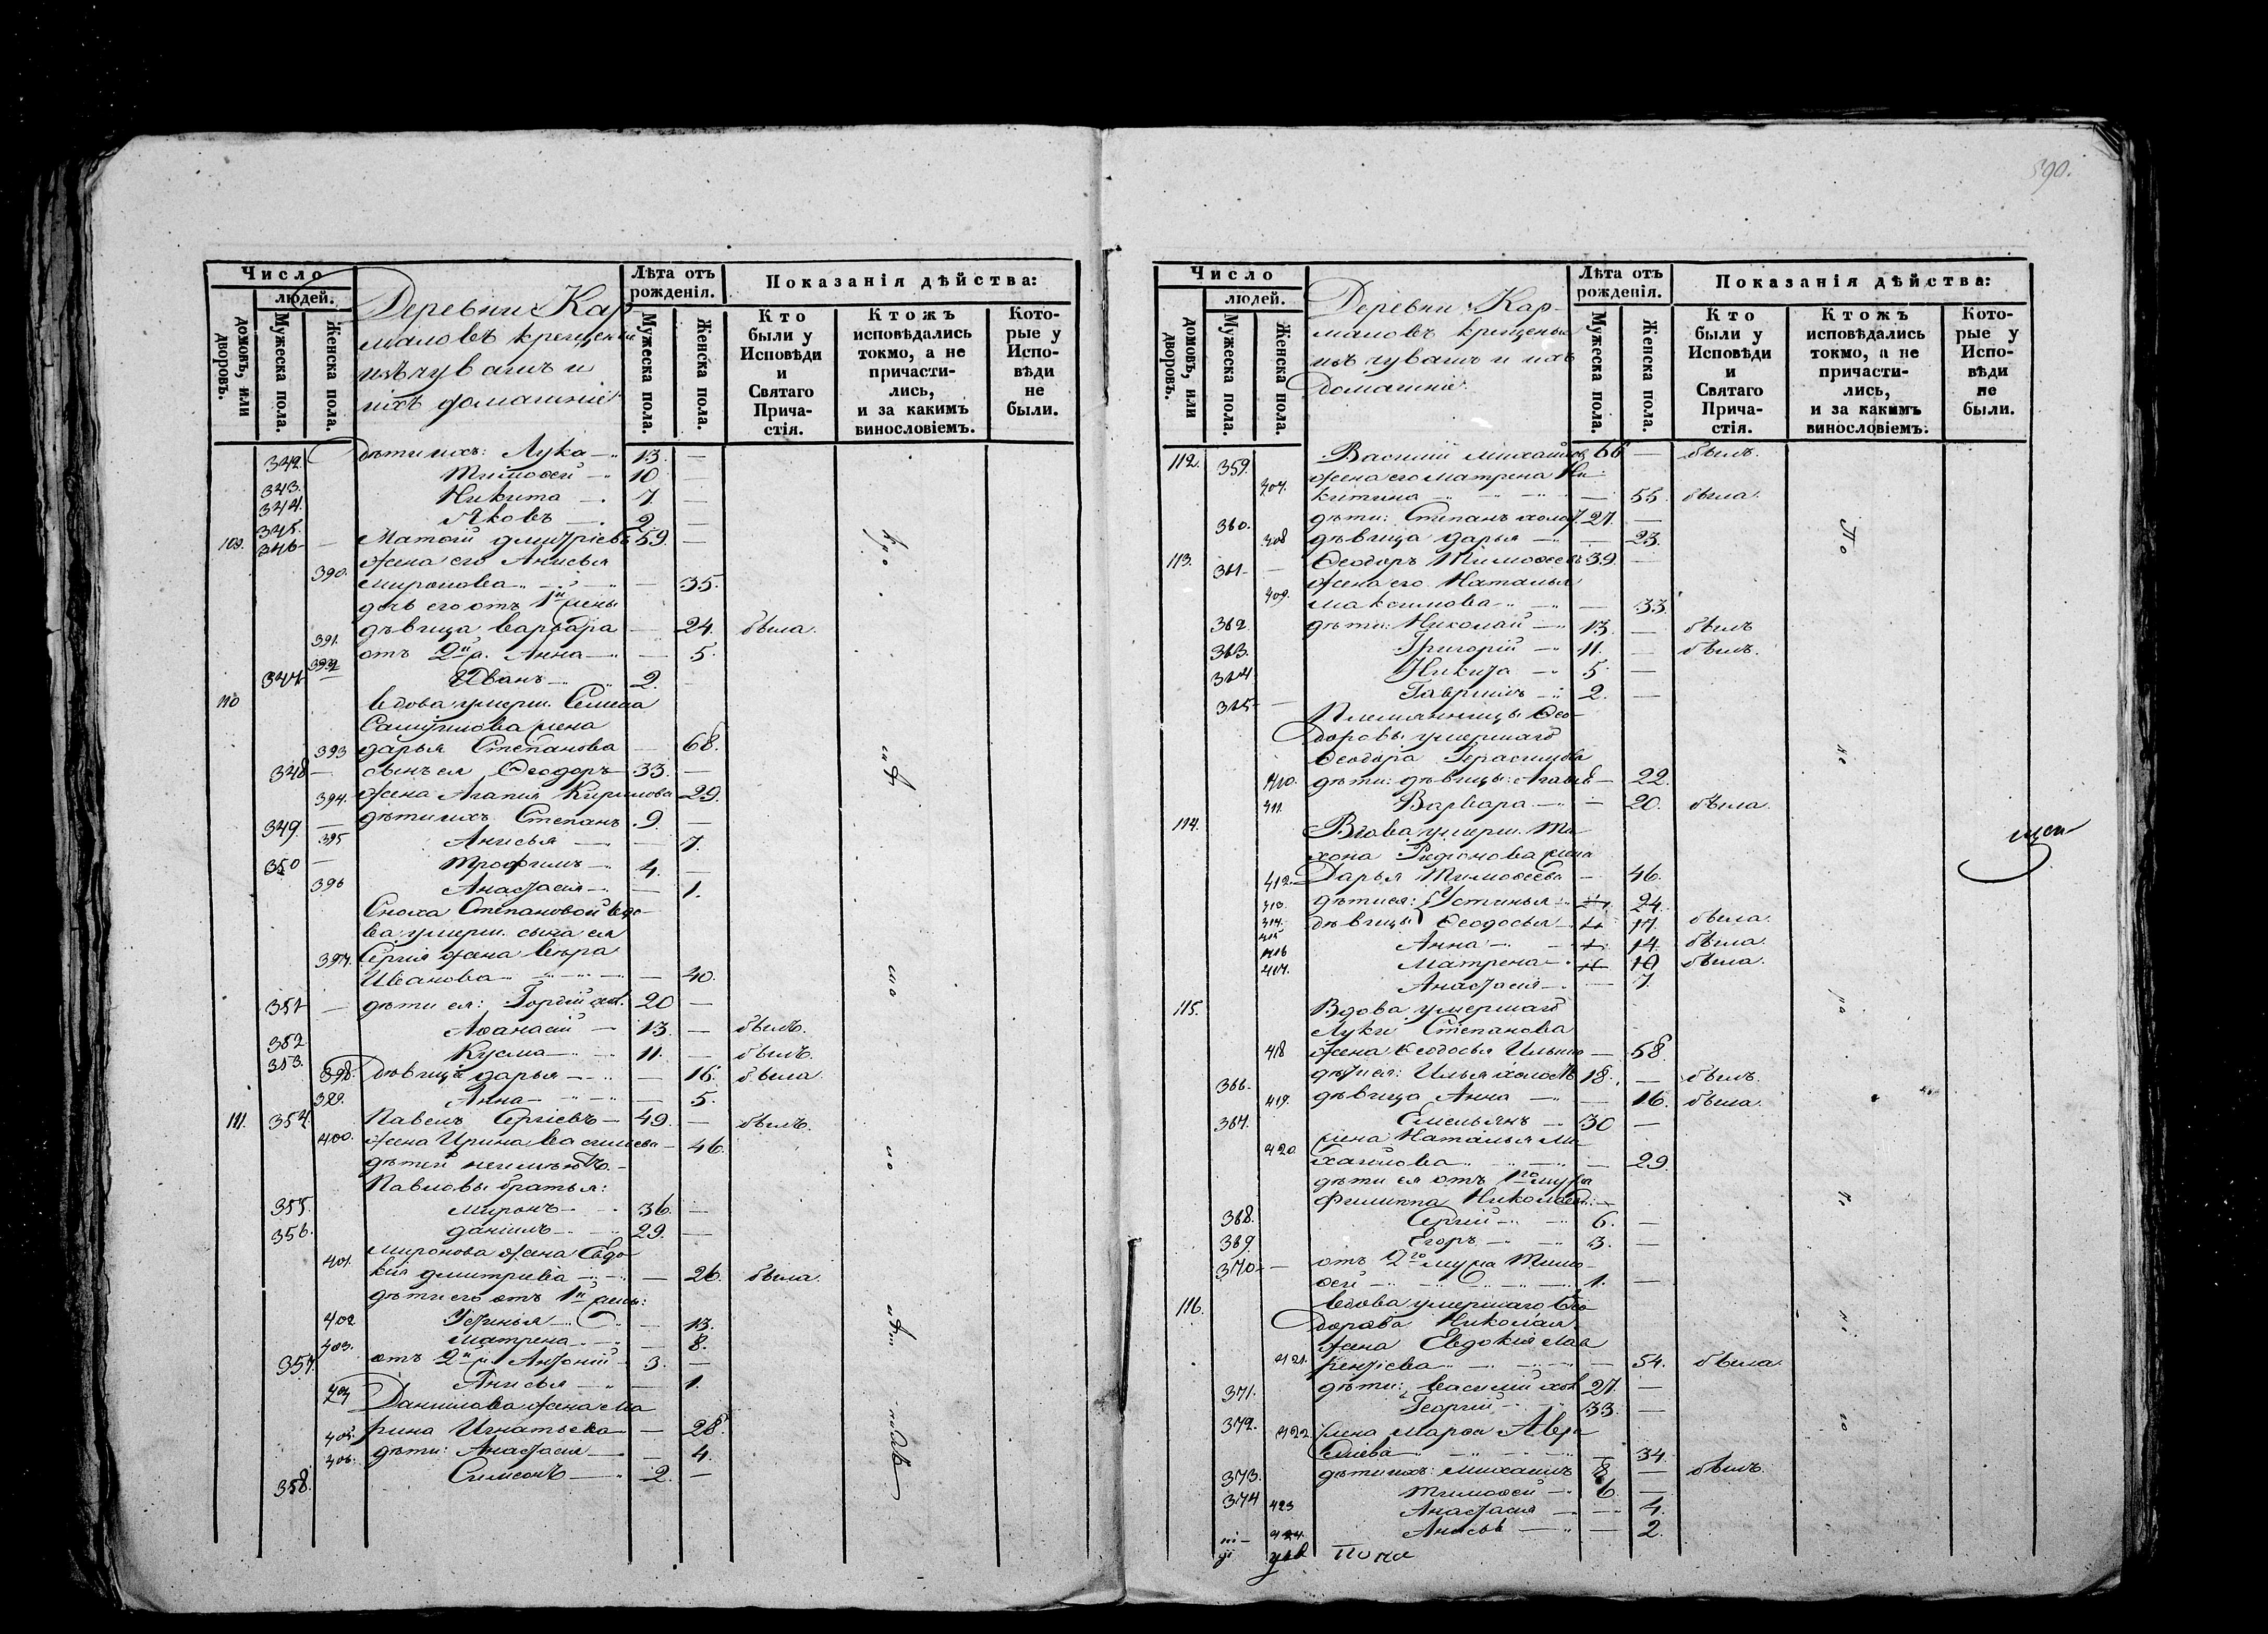 390.
Число
людей.
домовъ, или дворовъ.
Мужеска пола.
Женска пола.
Деревни Кар
маловъ крещены
изъ чувашъ и
ихъ домашніе
Лѣта отъ рожденія.
Мужеска пола.
Женска пола.
Показанія дѣйства:
Кто были у Исповѣди и Святаго Прича-стія.
Ктожъ исповѣдались токмо, а не причасти-лись, и за какимъ винословіемъ.
Кото-рые у Испо-вѣди не были.
342. дѣти ихъ: Лука 13. —
343. Тимоѳей 10 —
344. Никита 7 —
345. Яковъ 2 —
109. 346 — Матѳій Дмитріевъ 59. —
жена его Анисья
390. Миронова — 35.
дочь его отъ 1й жены
391. дѣвица Варвара — 24. была.
392 отъ 2й ж. Анна — 5.
347 Иванъ 2. —
110 вдова умерш. Семена
Самуилова жена
393 Дарья Степанова — 68.
348 — сынъ ея Ѳеодоръ 33. —
394. жена Агапія Кирилова 29.
349. — дѣти ихъ Степанъ 9. —
395 Анисья — 7.
350 — Трофимъ 4. —
396 Анастасія — 1.
Сноха Степановой вдо-
ва умерш. сына ея
397. Сергія жена Вѣра
Иванова — 40.
351 — дѣти ея: Гордій хол. 20 —
352 Аѳанасій 13. — былъ.
353. Кузма 11. — былъ.
398. дѣвица Дарья — 16. была.
399. Анна — 5.
111. 354. Павелъ Сергіевъ 49. — былъ.
400. жена Ирина Василиева — 46.
дѣтей неимѣютъ.
Павловы братья:
355. Миронъ 36. —
356. Данилъ 29. —
Миронова жена Евдо-
401. кія Дмитріева — 26. была.
дѣти его отъ 1й жены:
402 Устинья — 13.
403. Матрена — 8.
357. отъ 2й ж. Антоній 3. —
404 Анисья — 1.
Данилова жена Ма
405. рина Игнатьева — 28.
406. дѣти: Анастасія — 4.
358. Симеонъ 2. —
Число
людей.
домовъ, или дворовъ.
Мужеска пола.
Женска пола.
Деревни Кар-
маловъ крещены
изъ чувашъ и ихъ
домашніе.
Лѣта отъ рожденія.
Мужеска пола.
Женска пола.
Показанія дѣйства:
Кто были у Исповѣди и Святаго Прича-стія.
Ктожъ исповѣдались токмо, а не причасти-лись, и за какимъ винословіемъ.
Кото-рые у Испо-вѣди не были.
112. 359. Василій Михайловъ 66 — былъ.
жена его Матрена Ни-
407. китина — 55. была.
360. дѣти: Степанъ холост. 27. —
408 дѣвица Дарья — 23.
113. 361 — Ѳеодоръ Тимоѳеевъ 39. —
жена его Наталья
409. Максимова — 33.
362. дѣти: Николай 13. — былъ
363. Григорій 11. — былъ.
364 Никита 5 —
365 — Гавріилъ 2. —
Племянницы Ѳео-
доровы умершаго
Ѳеодора Герасимова
410. дѣти: дѣвицы: — 22.
411. Варвара — 20. была.
114. Вдова умерш. Ти-
хона жена
412. Дарья Тимоѳеева — 46.
413. дѣти ея: Устинья 24.
414. дѣвицы Ѳеодосья 17. была.
415 Анна 14. была.
416 Матрена 10 была.
417. Анастасія — 7.
115. Вдова умершаго
Луки Степанова
418 жена Ѳеодосья Ильина — 58.
366 дѣти ея: Илья холостъ 18. — былъ.
419. дѣвица Анна — 16. была.
367. Емельянъ 30 —
жена Наталья Ми-
420. хайлова — 29.
дѣти ея отъ 1го мужа
Филиппа
368. Сергій 6. —
369. Егоръ 3. —
370 — отъ 2го мужа Тимо-
ѳей 1. —
116. вдова умершаго Ѳео-
дорова Николая
жена Евдокія Лав
421. рентіева — 54. была.
371. дѣти: Василій хол 27. —
372. Георгій 33. —
422 жена Марѳа — 34.
373. дѣти ихъ: Михаилъ 8 — былъ.
374 Тимоѳей 6 —
423 Анастасія — 4.
424. — 2.